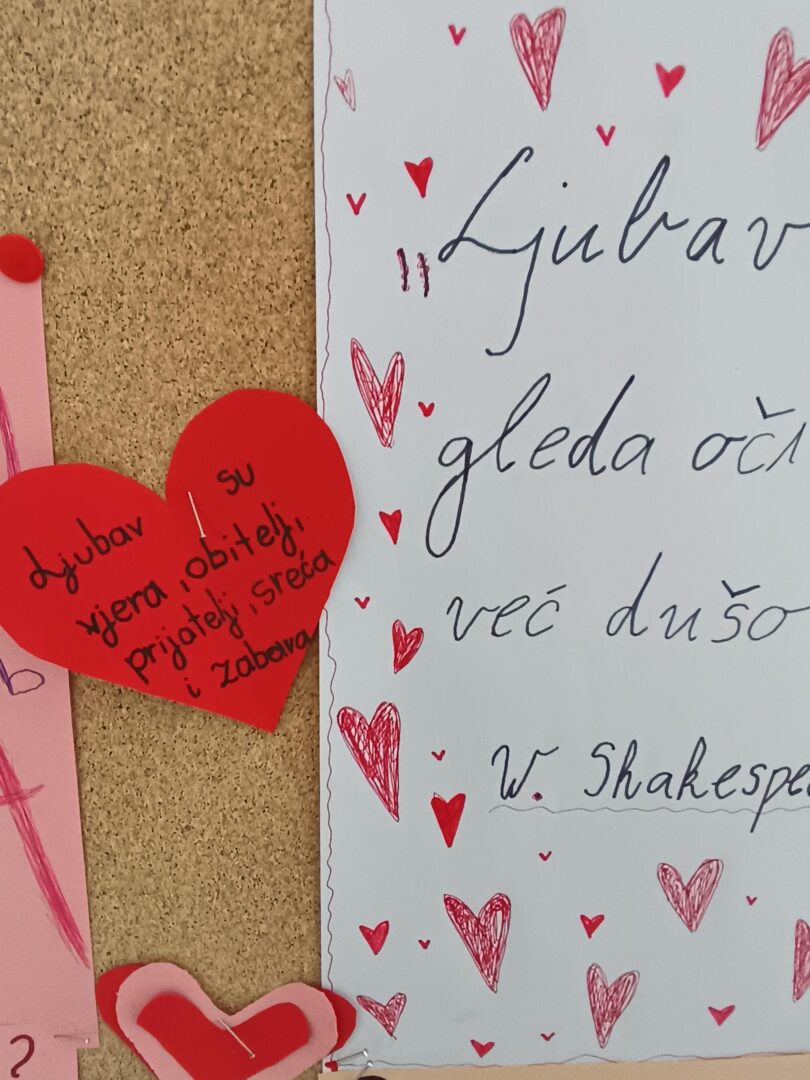 Ljubav su
vjera, obitelj,
prijatelj, sreća
i zabava
"Ljubav
gleda oči
već dušo
W. Shakespe
b
?